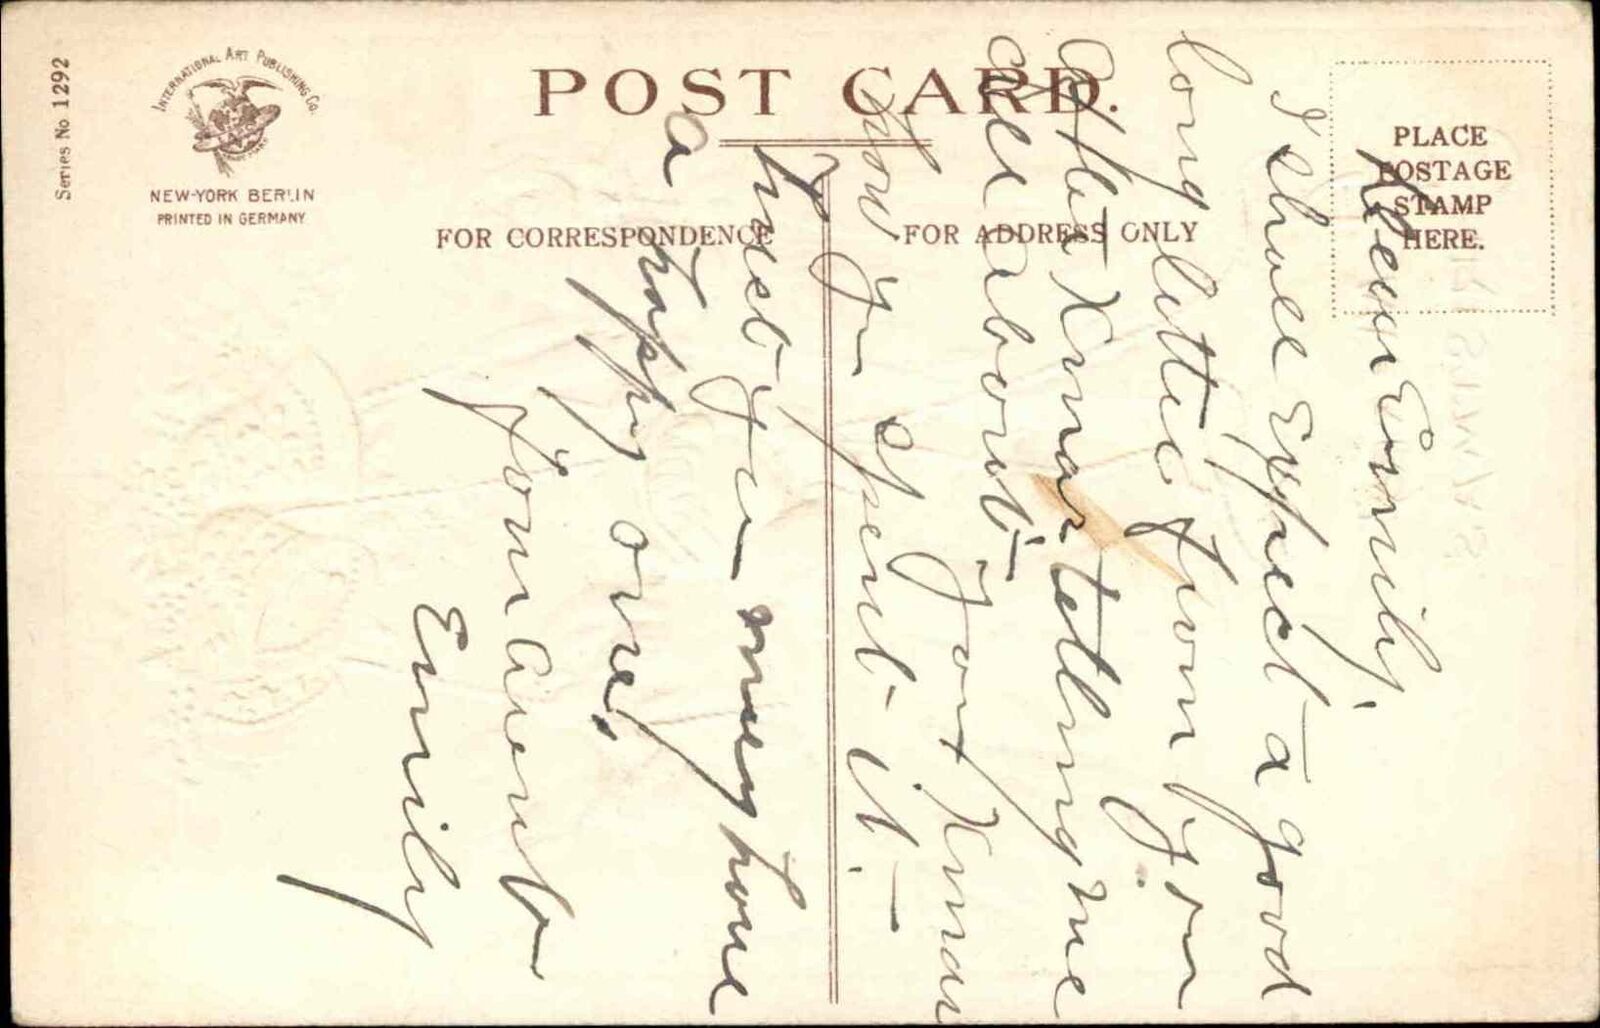 Series No 1292
INTERNATIONAL ART PUBLISHING Co.
NEW-YORK BERLIN
PRINTED IN GERMANY
POST CARD.
FOR CORRESPONDENCE
FOR ADDRESS ONLY
PLACE
POSTAGE
STAMP
HERE.
Dear Emily,
I shall Expect a good
long letter from you
after Xmas telling me
all about
your Xmas
how you spent it. —
trust you may have
a happy one.
Your Aunt
Emily